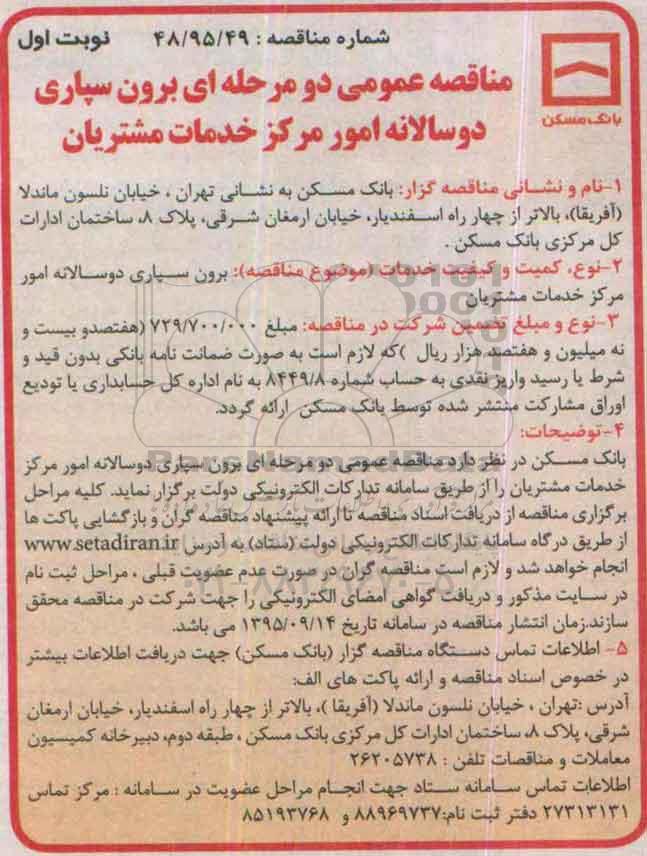 شماره مناقصه : ۴۸/۹۵/۴۹ نوبت اول
بانک مسکن
مناقصه عمومی دو مرحله ای برون سپاری
دوسالانه امور مرکز خدمات مشتریان
۱-نام و نشانی مناقصه گزار: بانک مسکن به نشانی تهران ، خیابان نلسون ماندلا
(آفریقا)، بالاتر از چهار راه اسفندیار، خیابان ارمغان شرقی، پلاک ۸، ساختمان ادارات
کل مرکزی بانک مسکن .
۲-نوع، کمیت و کیفیت خدمات (موضوع مناقصه): برون سپاری دوسالانه امور
مرکز خدمات مشتریان
۳-نوع و مبلغ تضمین شرکت در مناقصه: مبلغ ۷۲۹/۷۰۰/۰۰۰ (هفتصدو بیست و
نه میلیون و هفتصد هزار ریال )که لازم است به صورت ضمانت نامه بانکی بدون قید و
شرط یا رسید واریز نقدی به حساب شماره ۸۴۴۹/۸ به نام اداره کل حسابداری یا تودیع
اوراق مشارکت منتشر شده توسط بانک مسکن ارائه گردد.
۴-توضیحات:
بانک مسکن در نظر دارد مناقصه عمومی دو مرحله ای برون سپاری دوسالانه امور مرکز
خدمات مشتریان را از طریق سامانه تدارکات الکترونیکی دولت برگزار نماید. کلیه مراحل
برگزاری مناقصه از دریافت اسناد مناقصه تا ارائه پیشنهاد مناقصه گران و بازگشایی پاکت ها
از طریق درگاه سامانه تدارکات الکترونیکی دولت (ستاد) به آدرس www.setadiran.ir
انجام خواهد شد و لازم است مناقصه گران در صورت عدم عضویت قبلی ، مراحل ثبت نام
در سایت مذکور و دریافت گواهی امضای الکترونیکی را جهت شرکت در مناقصه محقق
سازند.زمان انتشار مناقصه در سامانه تاریخ ۱۳۹۵/۰۹/۱۴ می باشد.
۵- اطلاعات تماس دستگاه مناقصه گزار (بانک مسکن) جهت دریافت اطلاعات بیشتر
در خصوص اسناد مناقصه و ارائه پاکت های الف:
آدرس :تهران ، خیابان نلسون ماندلا (آفریقا )، بالاتر از چهار راه اسفندیار، خیابان ارمغان
شرقی، پلاک ۸، ساختمان ادارات کل مرکزی بانک مسکن ، طبقه دوم، دبیرخانه کمیسیون
معاملات و مناقصات تلفن : ۲۶۲۰۵۷۳۸
اطلاعات تماس سامانه ستاد جهت انجام مراحل عضویت در سامانه : مرکز تماس
۲۷۳۱۳۱۳۱ دفتر ثبت نام:۸۸۹۶۹۷۳۷ و ۸۵۱۹۳۷۶۸
ParsNamadData